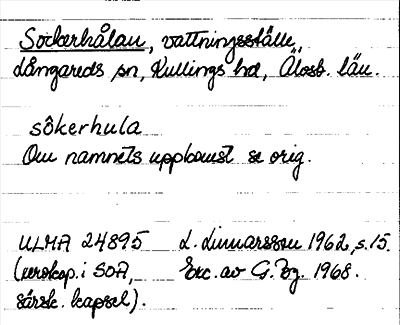 Sockerhålan, vattningsställe,
Långareds sn, Kullings hd, Älvsb. län.
sôkerhula
Om namnets uppkomst se orig.
ULMA 24895 L. Linnarsson 1962, s. 15.
(xerokop. i SOA, Exc. av G. Bg. 1968.
särsk. kapsel).